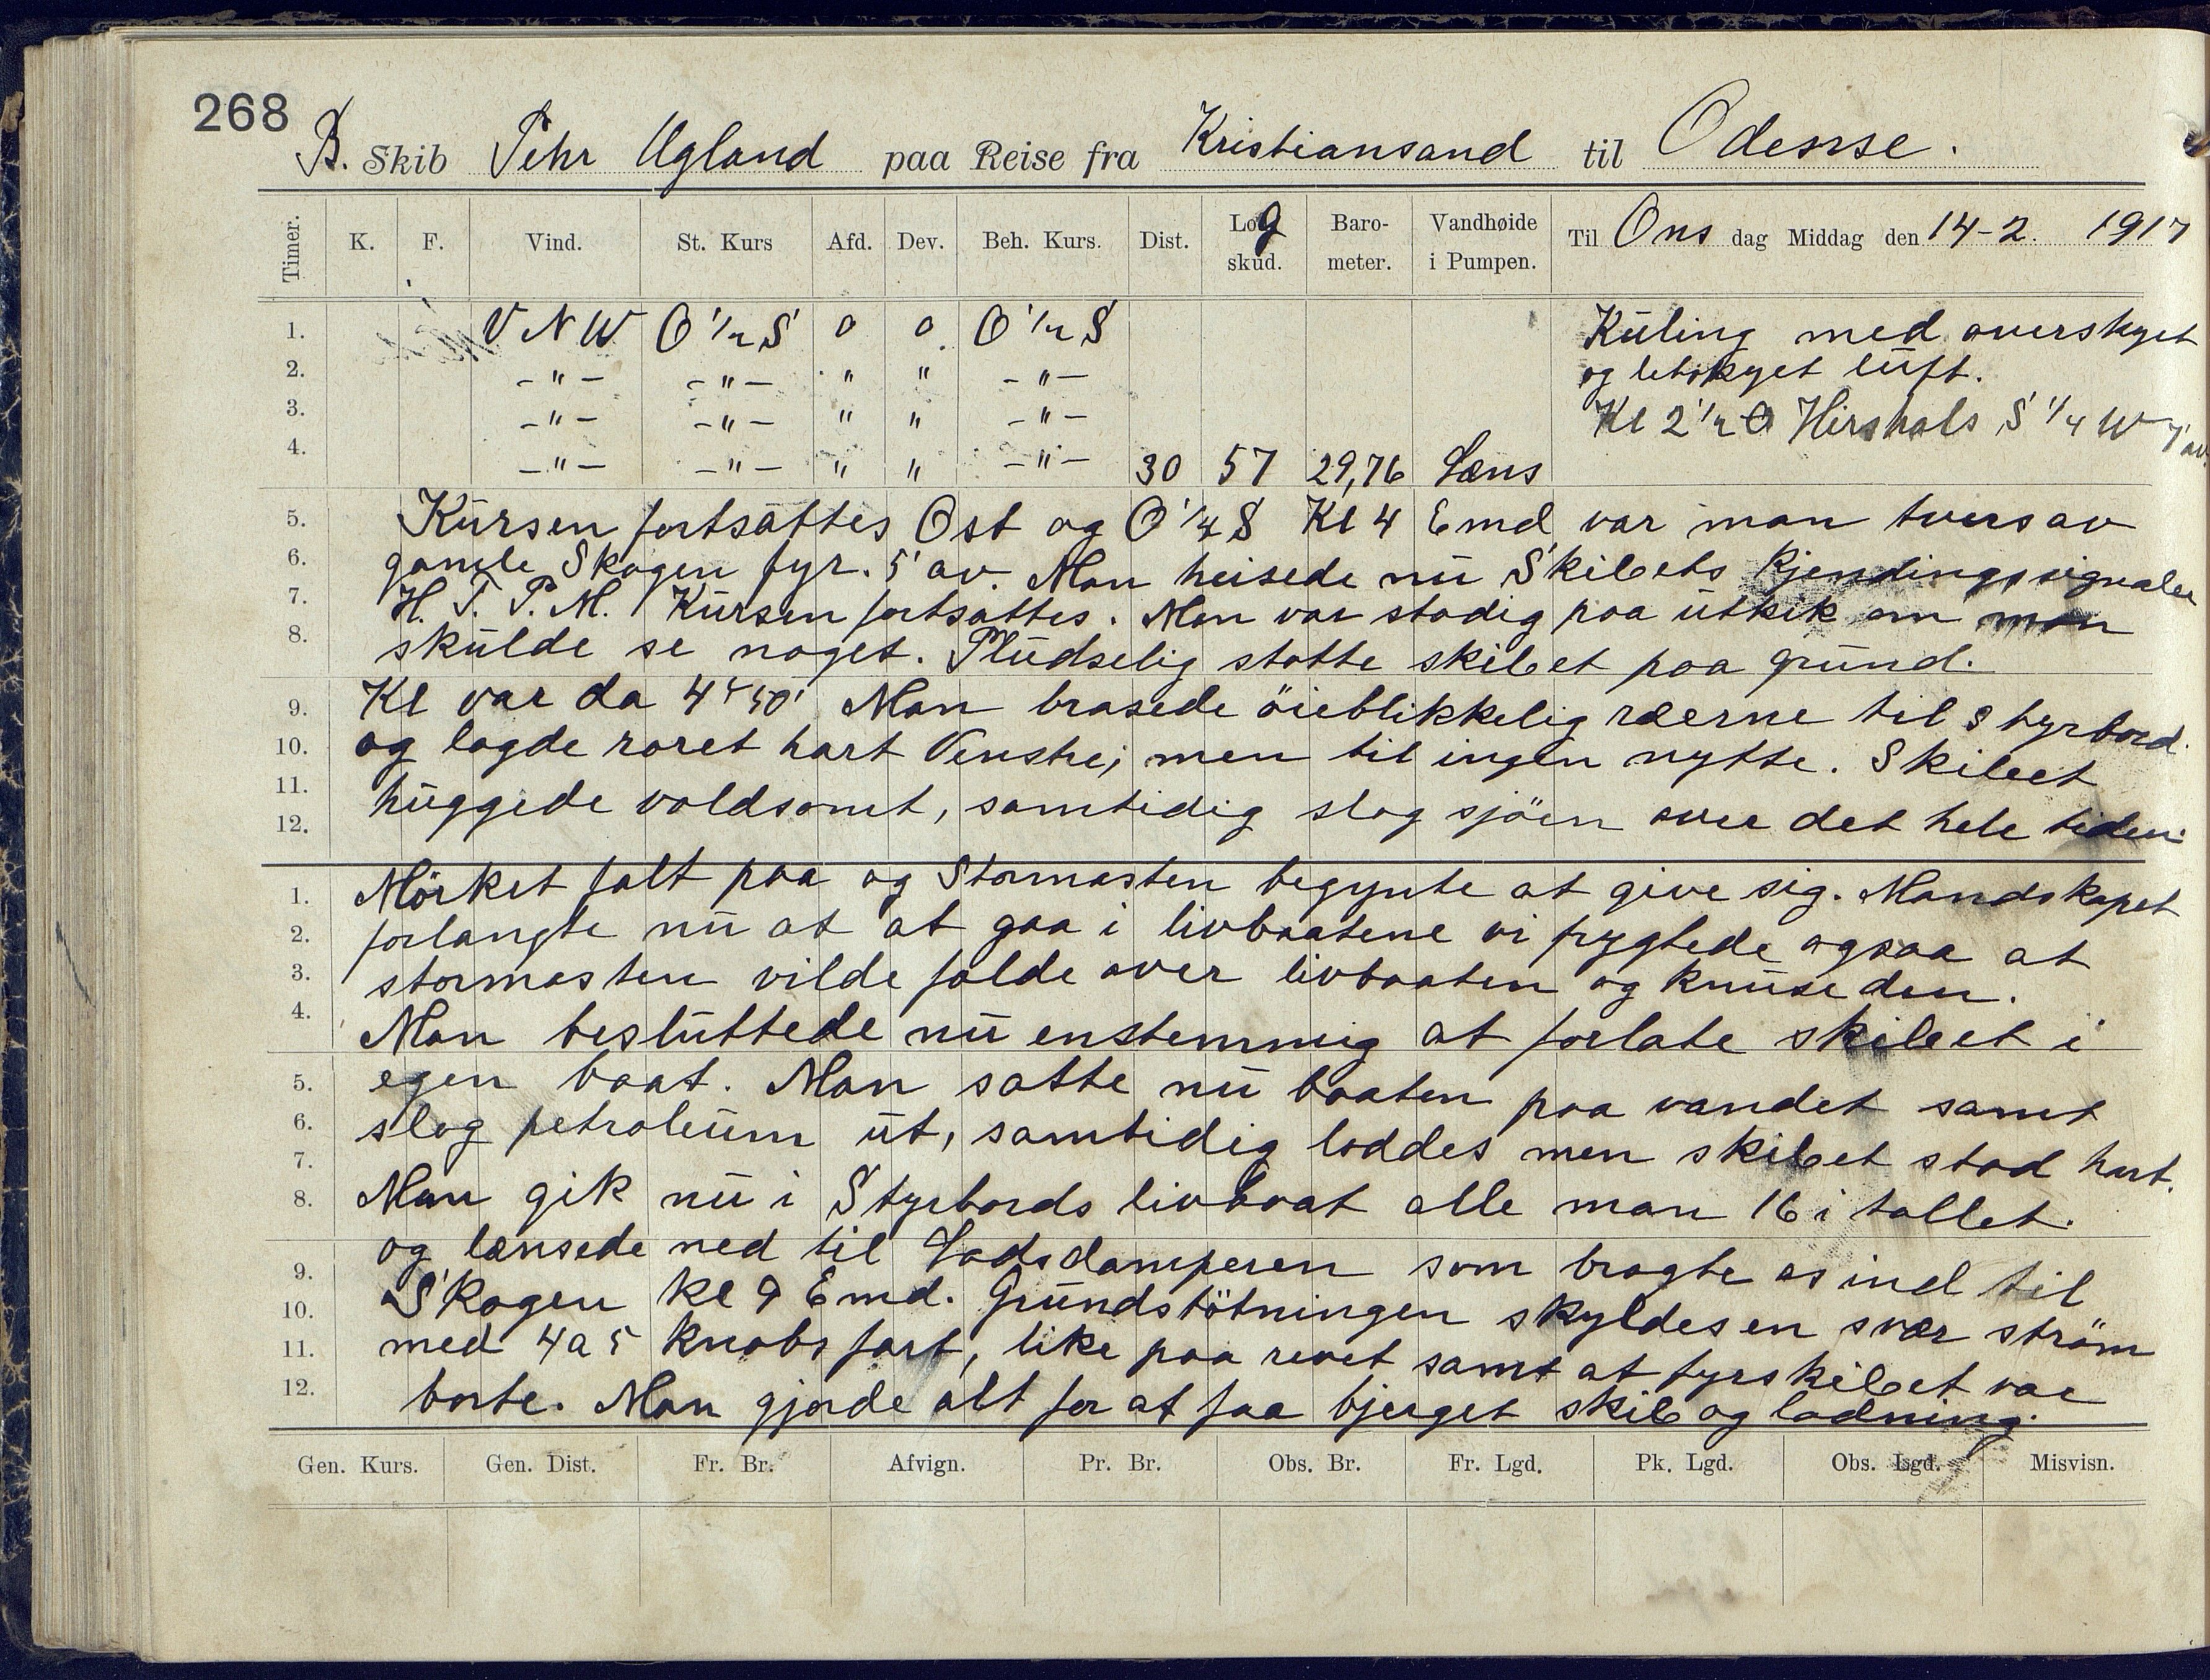 268
B. Skib Pehr Ugland paa Reise fra Kristiansand til Odense.
Timer. K. F. Vind. St. Kurs Afd. Dev. Beh. Kurs. Dist. Log skud. Baro-meter. Vandhøide i Pumpen. Til Ons dag Middag den 14-2. 1917
1. V N W O 1/2 S 0 0. O 1/2 S Kuling med overskyet
2. -"- -"- " " -"- og letskyet luft.
3. -"- -"- " " -"- Kl 2 1/2 Hirshals S 1/4 W 7' av
4. -"- -"- " " -"- 30 57 29,76 Læns
5. Kursen fortsattes Ost og O 1/4 S Kl 4 Emd var man tvers av
6. gamle Skagen fyr. 5' av. Man heisede nu Skibets Kjendingssignaler
7. H. T. P. M. Kursen fortsattes. Man var stadig paa utkik om man
8. skulde se noget. Pludselig støtte skibet paa grund.
9. Kl var da 4 Man brasede öieblikkelig ræerne til styrbord
10. og lagde roret hart Venstre; men til ingen nytte. Skibet
11. huggede voldsomt, samtidig slog sjöen over det hele tiden.
12.
1. Mörket falt paa og Stormasten begynte at give sig. Mandskapet
2. forlangte nu at at gaa i livbaatene vi frygtede ogsaa at
3. stormasten vilde falde over livbaaten og knuse den.
4. Man besluttede nu enstemmig at forlate skibet i
5. egen baat. Man satte nu baaten paa vandet samt
6. slog petroleum ut, samtidig loddes men skibet stod hart.
7.
8. Man gik nu i Styrbords livbaat alle man 16 i tallet.
9. og lænsede ned til Lodsdamperen som bragte os ind til
10. Skagen kl 9 Emd. Grundstötningen skyldes en svær ström
11. med 4 a 5 knobs fart, like paa revet samt at fyrskibet var
12. borte. Man gjorde alt for at faa bjerget skib og ladning.
Gen. Kurs. Gen. Dist. Fr. Br. Afvign. Pr. Br. Obs. Br. Fr. Lgd. Pk. Lgd. Obs. Lgd. Misvisn.